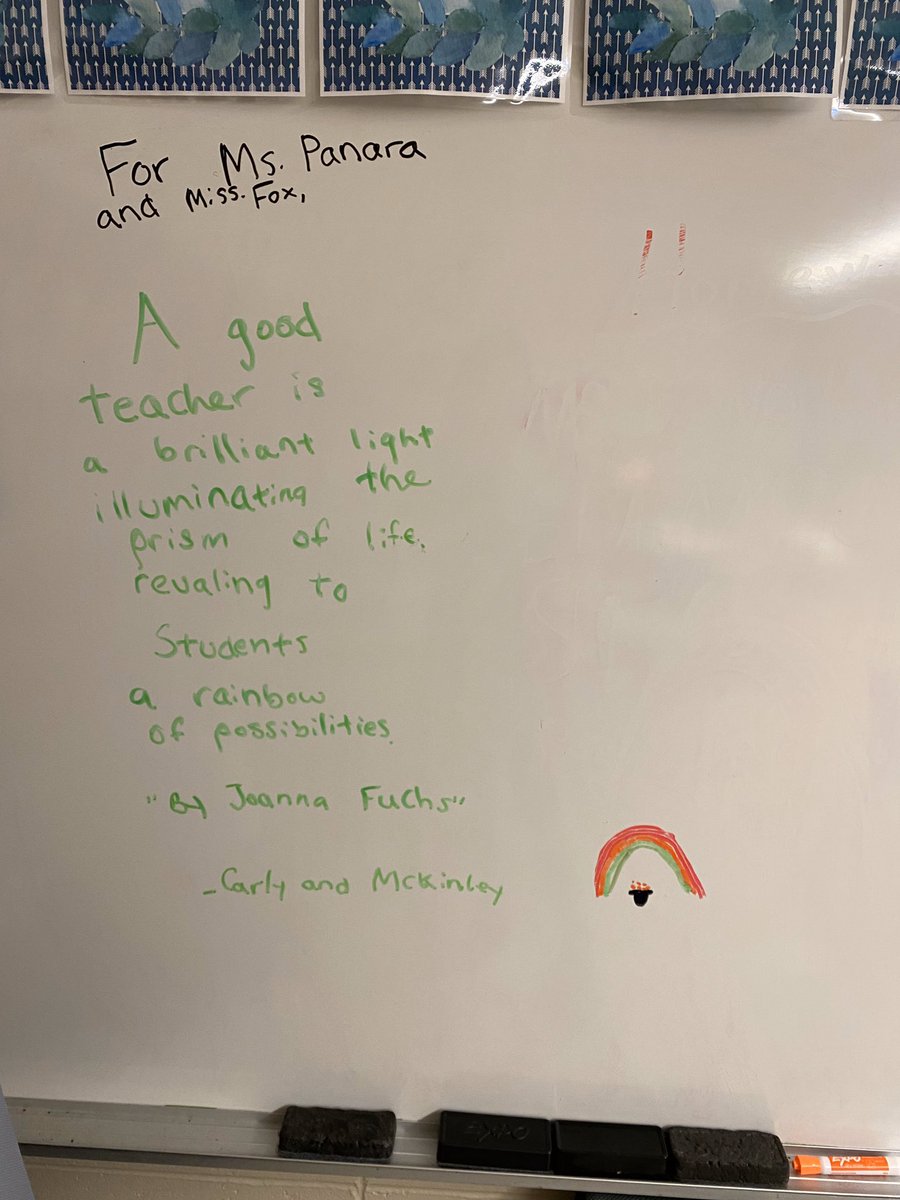 For Ms. Panara
and Miss. Fox,
A good
teacher is
a brilliant light
illuminating the
prism of life,
revaling to
Students
a rainbow
of possibilities.
"By Joanna Fuchs"
-Carly and McKinley
EXPO
EXPO